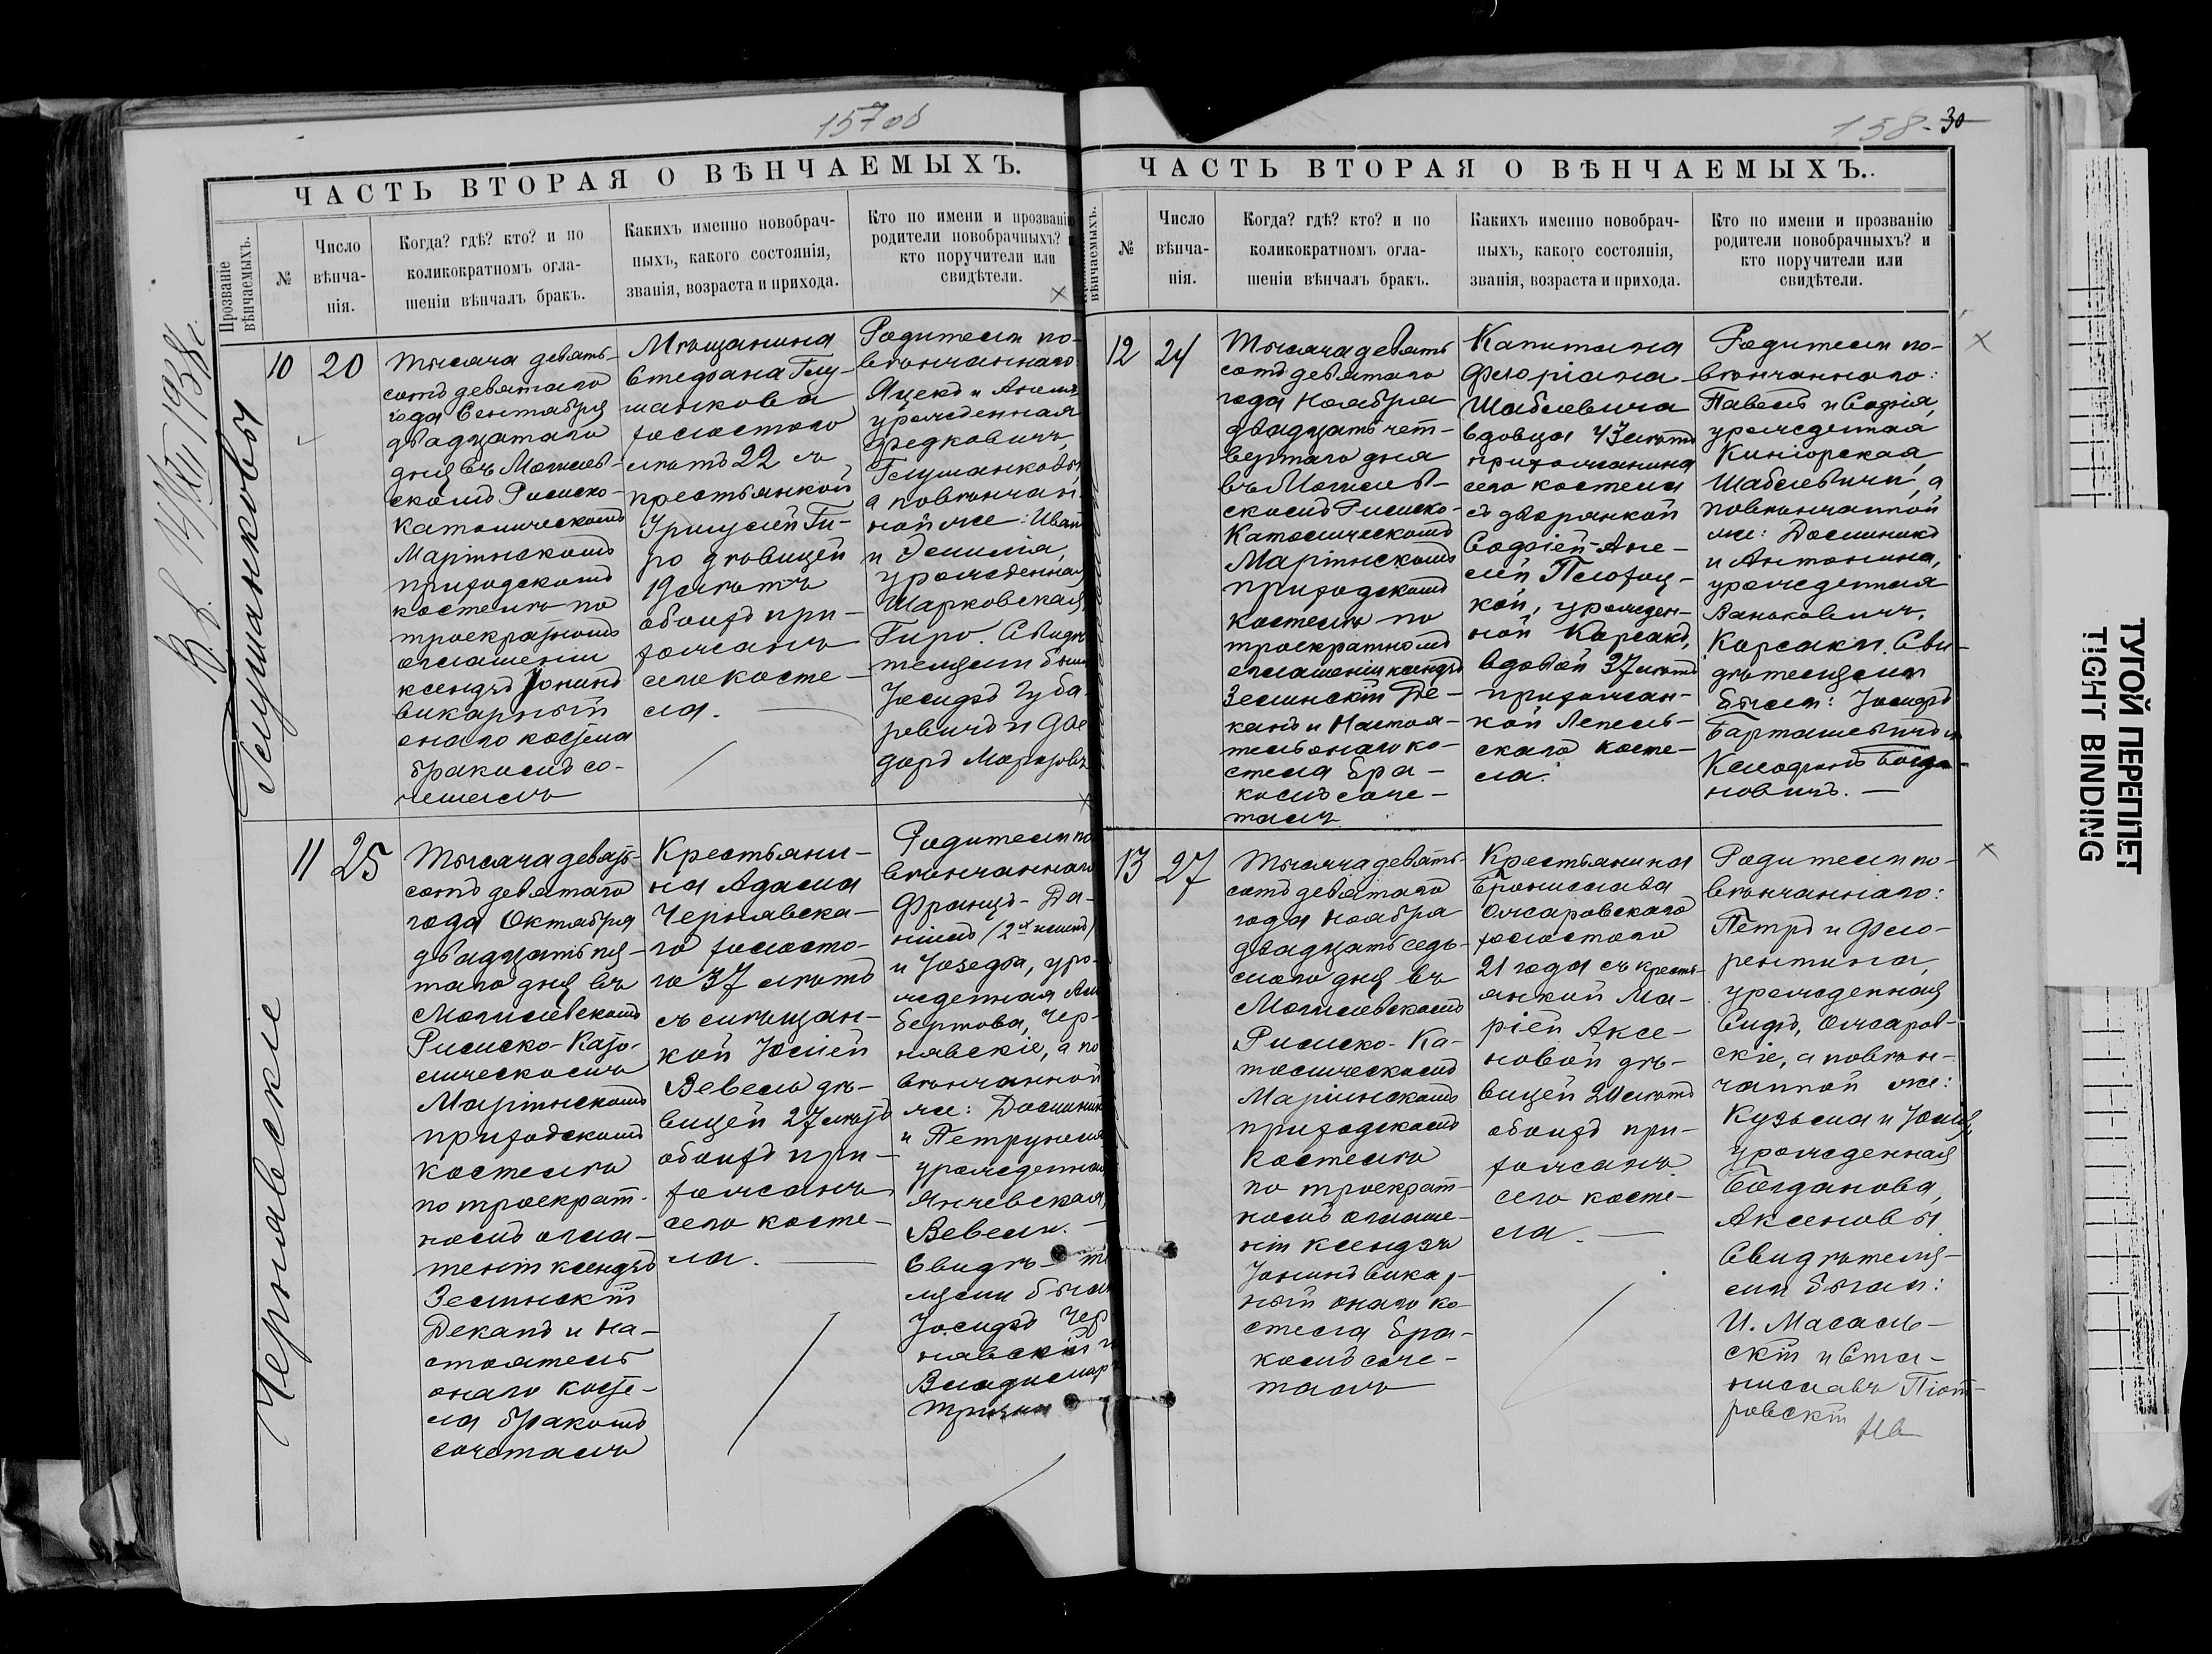 157 об
ЧАСТЬ ВТОРАЯ О ВѢНЧАЕМЫХЪ.
Прозваніе
вѣнчаемыхъ.
№
Число
вѣнча-
нія.
Когда? гдѣ? кто? и по
коликократномъ огла-
шеніи вѣнчалъ бракъ.
Какихъ именно новобрач-
ныхъ, какого состоянія,
званія, возраста и прихода.
Кто по имени и прозванію
родители новобрачныхъ? и
кто поручители или
свидѣтели.
14/XII 1938г.
Глушанковы
10
20
Тысяча девять-
сотъ девятаго
года Сентября
двадцатаго
дня въ Могилев-
скомъ Римско-
Католическомъ
Маріинскомъ
приходскомъ
костелѣ по
троекратномъ
оглашеніи
ксендзъ Іонинъ
викарный
онаго костела
бракомъ со-
четалъ
Мѣщанина
Стефана Глу-
шанкова
холостого
лѣтъ 22 съ
крестьянкой
Урсулей Ги-
ро дѣвицей
19 лѣтъ
обоихъ при-
хожанъ
сего косте-
ла.
Родители по-
вѣнчаннаго:
Яцекъ и Анеля
урожденная
Федковичъ,
Глушанковы,
а повѣнчан-
ной же: Иванъ
и Эмилія,
урожденная
Шарковская,
Гиро. Свидѣ-
телями были
Іосифъ Губа-
ревичъ и Фе
доръ Морозовъ
Чернявскіе
11
25
Тысяча девять-
сотъ девятаго
года Октября
двадцать пя-
таго дня въ
Могилевскомъ
Римско-Като-
лическомъ
Маріинскомъ
приходскомъ
костелѣ
по троекрат-
номъ огла-
шеніи ксендзъ
Зелинскій
Деканъ и На-
стоятель
онаго косте-
ла бракомъ
сочеталъ
Крестьяни-
на Адама
Чернявска-
го холосто-
го 37 лѣтъ
съ мѣщан-
кой Юліей
Вевель дѣ-
вицей 27 лѣтъ
обоихъ при-
хожанъ
сего косте-
ла.
Родители по
вѣнчаннаго
Францъ-Да-
ніилъ (2хъ именъ)
и Іозефа, уро-
жденная Аль
бертова, Чер-
нявскіе, а по
вѣнчанной
же: Доминикъ
и Петрунеля
урожденная
Янчевская,
Вевели.
Свидѣ-те
лями были
Іосифъ Чер
нявскій и
Владимир
158. 30
ЧАСТЬ ВТОРАЯ О ВѢНЧАЕМЫХЪ.
вѣнчаемыхъ.
№
Число
вѣнча-
нія.
Когда? гдѣ? кто? и по
коликократномъ огла-
шеніи вѣнчалъ бракъ.
Какихъ именно новобрач-
ныхъ, какого состоянія,
званія, возраста и прихода.
Кто по имени и прозванію
родители новобрачныхъ? и
кто поручители или
свидѣтели.
12
24
Тысяча девять
сотъ девятаго
года Ноября
двадцать чет-
вертаго дня
въ Могилев-
скомъ Римско-
Католическомъ
Маріинскомъ
приходскомъ
костелѣ по
троекратномъ
оглашеніи ксендзъ
Зелинскій Де-
канъ и Настоя-
тель онаго ко-
стела бра-
комъ соче-
талъ
Капитана
Флоріана
Шаблевича
вдовца 43 лѣтъ
прихожанина
сего костела
съ дворянкой
Софіей-Ане-
лей Плохоц-
кой, урожден-
ной Корсакъ,
вдовой 37 лѣтъ
прихожан-
кой Лепель-
скаго косте-
ла.
Родители по-
вѣнчаннаго:
Павелъ и Софія,
урожденная
Киніорская,
Шаблевичи, а
повѣнчанной
же: Доминикъ
и Антонина,
урожденная
Ваньковичъ,
Корсаки. Сви-
дѣтелями
были: Іосифъ
Барташевичъ и
Клеофансъ Богда-
новичъ.
13
27
Тысяча девять-
сотъ девятаго
года Ноября
двадцать седь-
маго дня въ
Могилевскомъ
Римско-Ка-
толическомъ
Маріинскомъ
приходскомъ
костелѣ
по троекрат-
номъ оглаше-
ніи ксендзъ
Іонинъ викар-
ный онаго ко-
стела бра-
комъ соче-
талъ
Крестьянина
Бронислава
Ожаровскаго
холостого
21 года съ кресть-
янкой Ма-
ріей Аксе-
новой дѣ-
вицей 20 лѣтъ
обоихъ при-
хожанъ
сего косте-
ла.
Родители по-
вѣнчаннаго:
Петръ и Фло-
рентина,
урожденная
Сидъ, Ожаров-
скіе, а повѣн-
чанной же:
Кузьма и Юлія,
урожденная
Богданова,
Аксеновы
Свидѣтеля-
ми были:
И. Масаль-
скій и Ста-
ниславъ Піот-
ровскій
ТУГОЙ ПЕРЕПЛЕТ
TIGHT BINDING